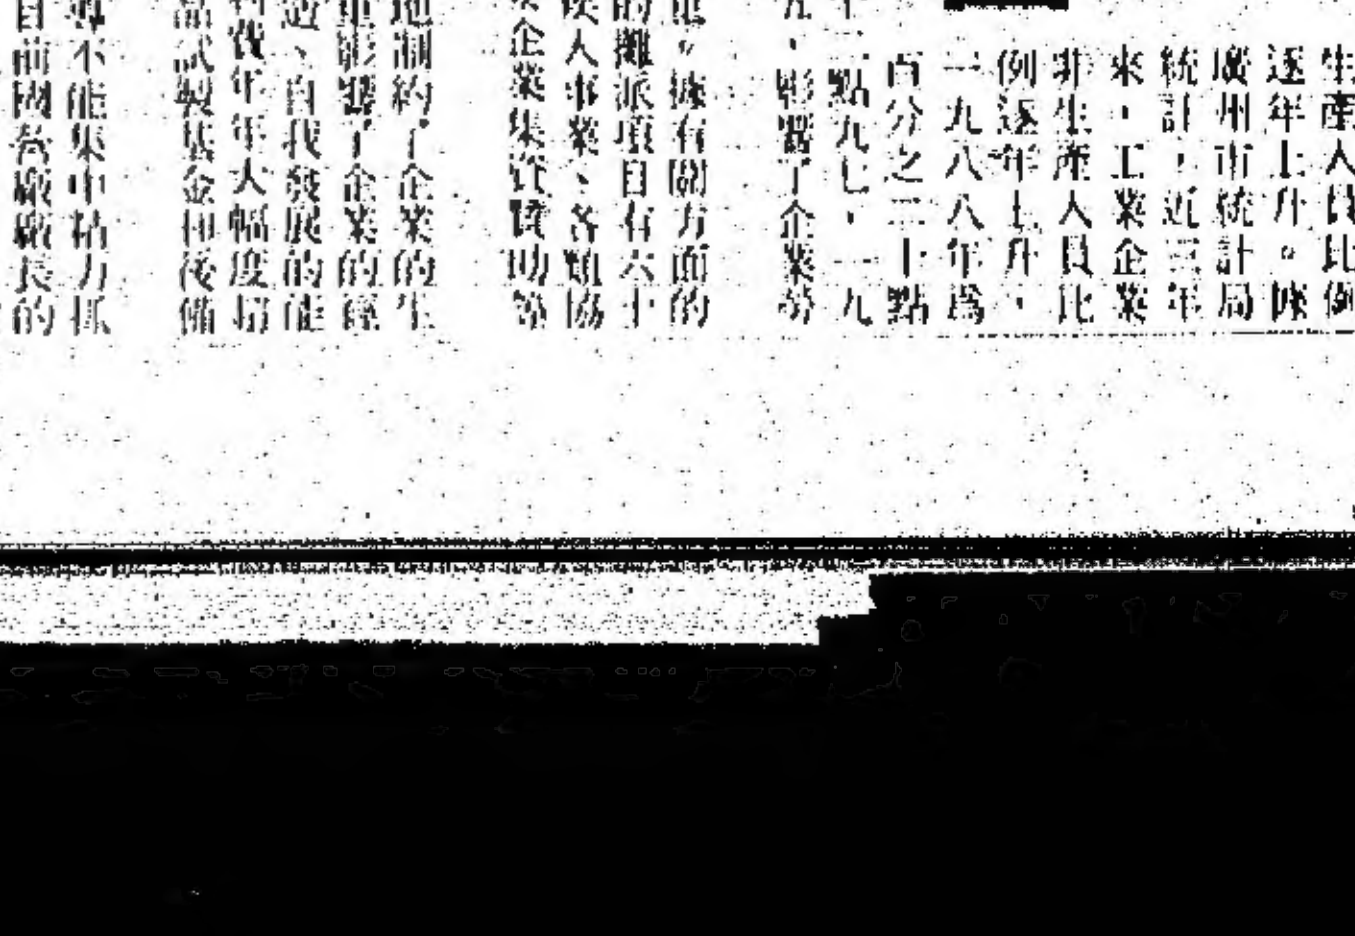 生產人員比例
逐年上升。據
廣州市統計局
統計，近三年
來，工業企業
非生產人員比
例逐年上升，
一九八八年爲
百分之二十點
點九七，一九
影響了企業勞
據有關方面的
的攤派項目有六十
人事業、各類協
企業集資贊助等
地制約了企業的生
重影響了企業的經
造、自我發展的能
費年年大幅度捐
品試製基金和後備
不能集中精力抓
目前國營廠廠長的